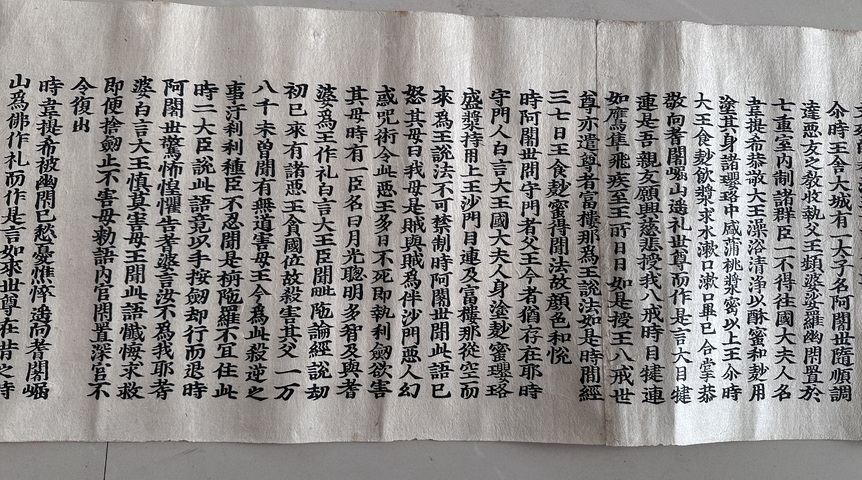 尒時王舍大城有一太子名阿闍世隨順調
達惡友之教收執父王頻婆娑羅幽閇置於
七重室內制諸群臣一不得往國大夫人名
韋提希恭敬大王澡浴清淨以酥蜜和麨用
塗其身諸瓔珞中盛蒲桃漿密以上王尒時
大王食麨飲漿求水漱口漱口畢已合掌恭
敬向耆闍崛山遙礼世尊而作是言大目犍
連是吾親友願興慈悲授我八戒時目犍連
如鷹隼飛疾至王所日日如是授王八戒世
尊亦遣尊者富樓那為王說法如是時間經
三七日王食麨蜜得聞法故顏色和悅
時阿闍世問守門者父王今者猶存在耶時
守門人白言大王國大夫人身塗麨蜜瓔珞
盛漿持用上王沙門目連及富樓那從空而
來為王說法不可禁制時阿闍世聞此語已
怒其母曰我母是賊與賊為伴沙門惡人幻
惑咒術令此惡王多日不死即執利劔欲害
其母時有一臣名曰月光聰明多智及與耆
婆為王作礼白言大王臣聞毗陁論經說劫
初已來有諸惡王貪國位故殺害其父一万
八千未曾聞有無道害母王今為此殺逆之
事汙刹利種臣不忍聞是栴陁羅不冝住此
時二大臣說此語竟以手按劔却行而退時
阿闍世驚怖惶懼告耆婆言汝不為我耶耆
婆白言大王慎莫害母王聞此語懺悔求救
即便捨劔止不害母勑語內官閇置深宮不
令復出
時韋提希被幽閇已愁憂憔悴遙向耆闍崛
山為佛作礼而作是言如來世尊在昔之時